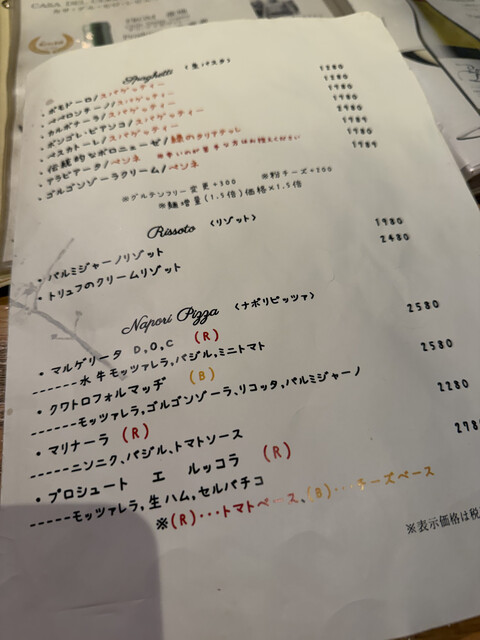 CASA DEL
Spaghetti 〈生パスタ〉
・ポモドーロ/スパゲッティー 1280
・ペペロンチーノ/スパゲッティー 1280
・カルボナーラ/スパゲッティー 1780
・ボンゴレ・ビアンコ/スパゲッティー 1780
・ペスカトーレ/スパゲッティー 1980
・伝統的なボロニェーゼ/緑のタリアテッレ
・アラビアータ/ペンネ ※辛いのが苦手な方はお控えください
・ゴルゴンゾーラクリーム/ペンネ
※グルテンフリー変更+300 ※粉チーズ+200
※麺増量(1.5倍)価格×1.5倍
Rissoto 〈リゾット〉
・パルミジャーノリゾット 1980
・トリュフのクリームリゾット 2480
Napori Pizza 〈ナポリピッツァ〉
・マルゲリータ D,O,C (R) 2580
------水牛モッツァレラ,バジル,ミニトマト
・クワトロフォルマッヂ (B) 2580
------モッツァレラ,ゴルゴンゾーラ,リコッタ,パルミジャーノ
・マリナーラ (R) 2280
------ニンニク,バジル,トマトソース
・プロシュート エ ルッコラ (R) 278
------モッツァレラ,生ハム,セルバチコ
※(R)・・・トマトベース、(B)・・・チーズベース
※表示価格は税